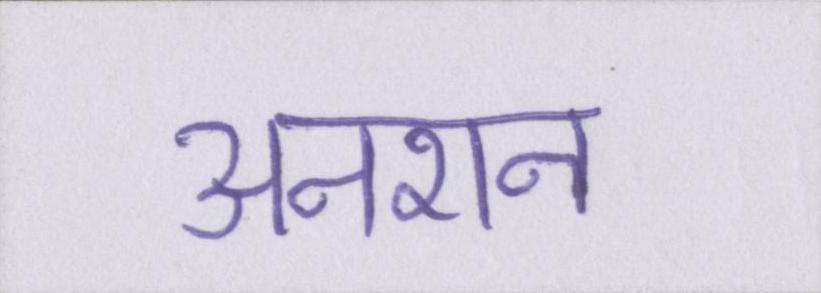 अनशन